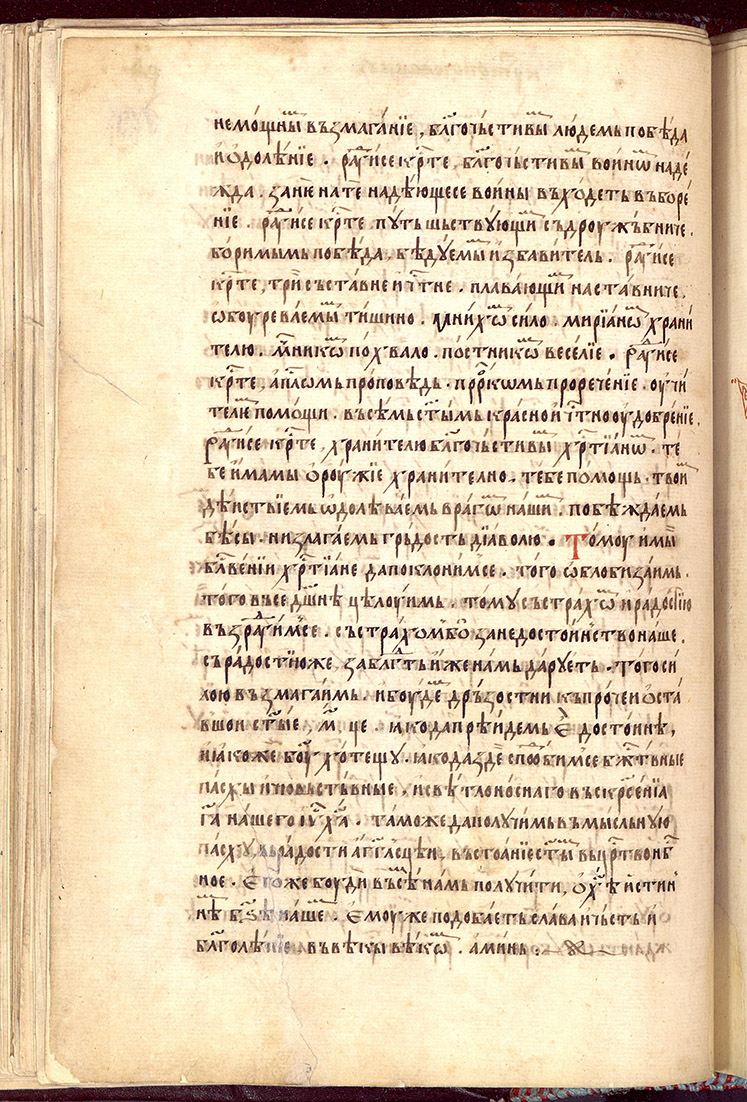 немо́щны въꙁмага́нїе, бл҃гочь́стивы лю́демь побѣ́да
и҆ ѡ҆долѣ́нїе . ра́ⷣꙋисе крⷭ҇те, бл҃гочь́стивы воинѡ наде́
жда . ꙁанѐ на те надѣ́ющесе во́ины въхо́деть въ боре́
нїе . ра́ⷣꙋисе крⷭ҇те . пꙋть шьствꙋ́ющи съдроу́жьбниче .
бо́римымь побѣ́да . бѣ́дꙋемы и҆ꙁбави́тель . ра́ⷣꙋисе
крⷭ҇те, трїсъста́вне и҆ чтⷭ҇не . пла́вающи наста́вниче,
ѡ҆боурева́емы ти́шино . си́ло . мирїа́нѡ храни́
телю . похва́ло . по́стникѡ весе́лїе . ра́ⷣꙋисе
крⷭ҇те, а҆пⷭ҇лѡмь про́повѣдь . прⷪ҇ркѡмь прорече́нїе . оу҆чи́
телю помо́щи . въсѣ́мь ст҃ы́мь красно́ и҆ чтⷭ҇но оу҆добре́нїе .
ра́ⷣꙋисе крⷭ҇те, храни́телю бл҃гочь́стивы хрⷭ҇тїа́нѡ . те
бе и҆́мамы ѻ҆роу́жїе храни́телно . тебе по́мощь . твои
дѣ́иствїемь ѡ҆долѣва́емь врагѡ на́ши . побѣжда́емь
бѣ́сы . ниꙁлага́емь гръ́дость дїа́волю . То́моу и҆мы
бл҃ве́нїи хрⷭ҇тїа́не да покло́нимсе . того̀ ѡ҆блобиꙁа́имь .
того̀ въсе дш҃нѣ цѣ́лоуимь . томꙋ̀ съ стра́хѡ и ра́достїю
въꙁра́ⷣꙋимсе . съ стра́хѡмь бѡ̀ ꙁа недосто́инство на́ше,
съ ра́достїю же, ꙁа бл҃гⷣть и҆́же на́мь да́рꙋеть . того̀ си́
лою въꙁмага́имь . и҆ боу́де дрь́ꙁостни къ про́чеи ѻ҆ста́
вшои ст҃ы́е, . ꙗ҆́ко да прѣ́идемь Ꙗ҆̀ досто́инѣ,
ꙗ҆́коже бо́у хо́тещꙋ . ꙗ҆́ко да ꙁдѐ спⷣо́бимсе бжⷭ҇тв́ные
па́схы и чювьстьвные . и свѣ́тлоно́снаго въскрⷭ҇се́нїа
га҃ на́шего і҆ꙋ҃ х҃а . та́може да полꙋчимь въ мы́сльнꙋю
па́схꙋ, въ ра́дости а҆́гг҃лсцѣи, въ стоа́нїе ст҃ы́ въ црⷭ҇тво нб҃
ное . Е҆го́же боу́ди въсѣ на́мь полꙋчи́ти, ѻ҆ х҃ѣ и҆́стин
нѣ бꙁ҃ѣ на́ше . Е҆моу́же подоба́еть сла́ва и чь́сть и
бл҃голѣ́пїе въ вѣ́кы вѣ́кѡ . ами́нь .